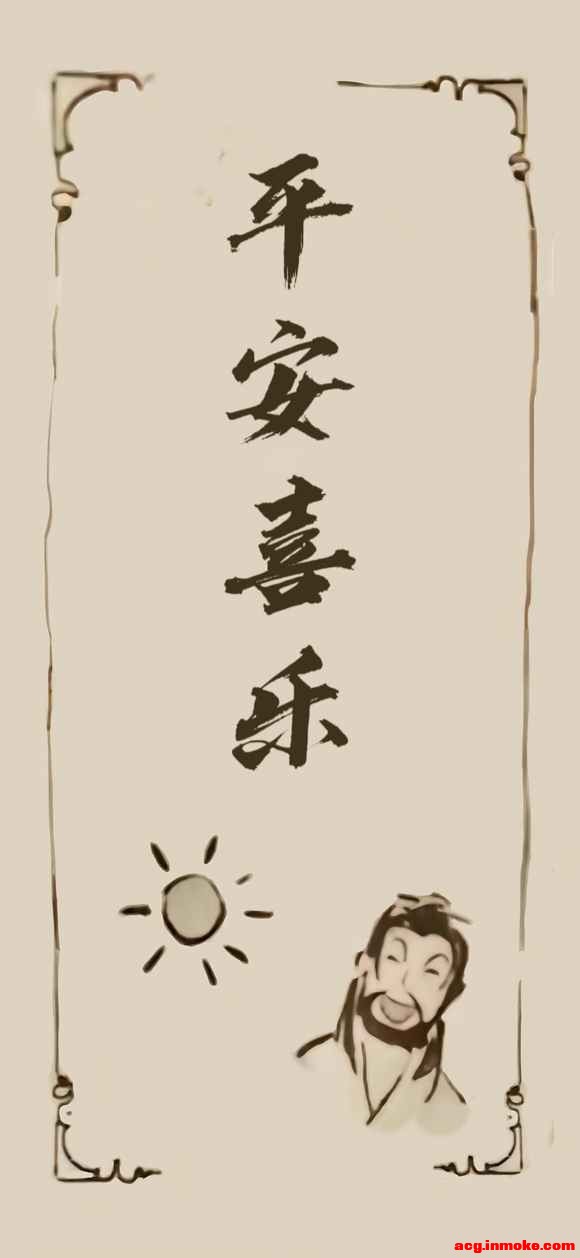 平安喜乐
acg.inmoke.com